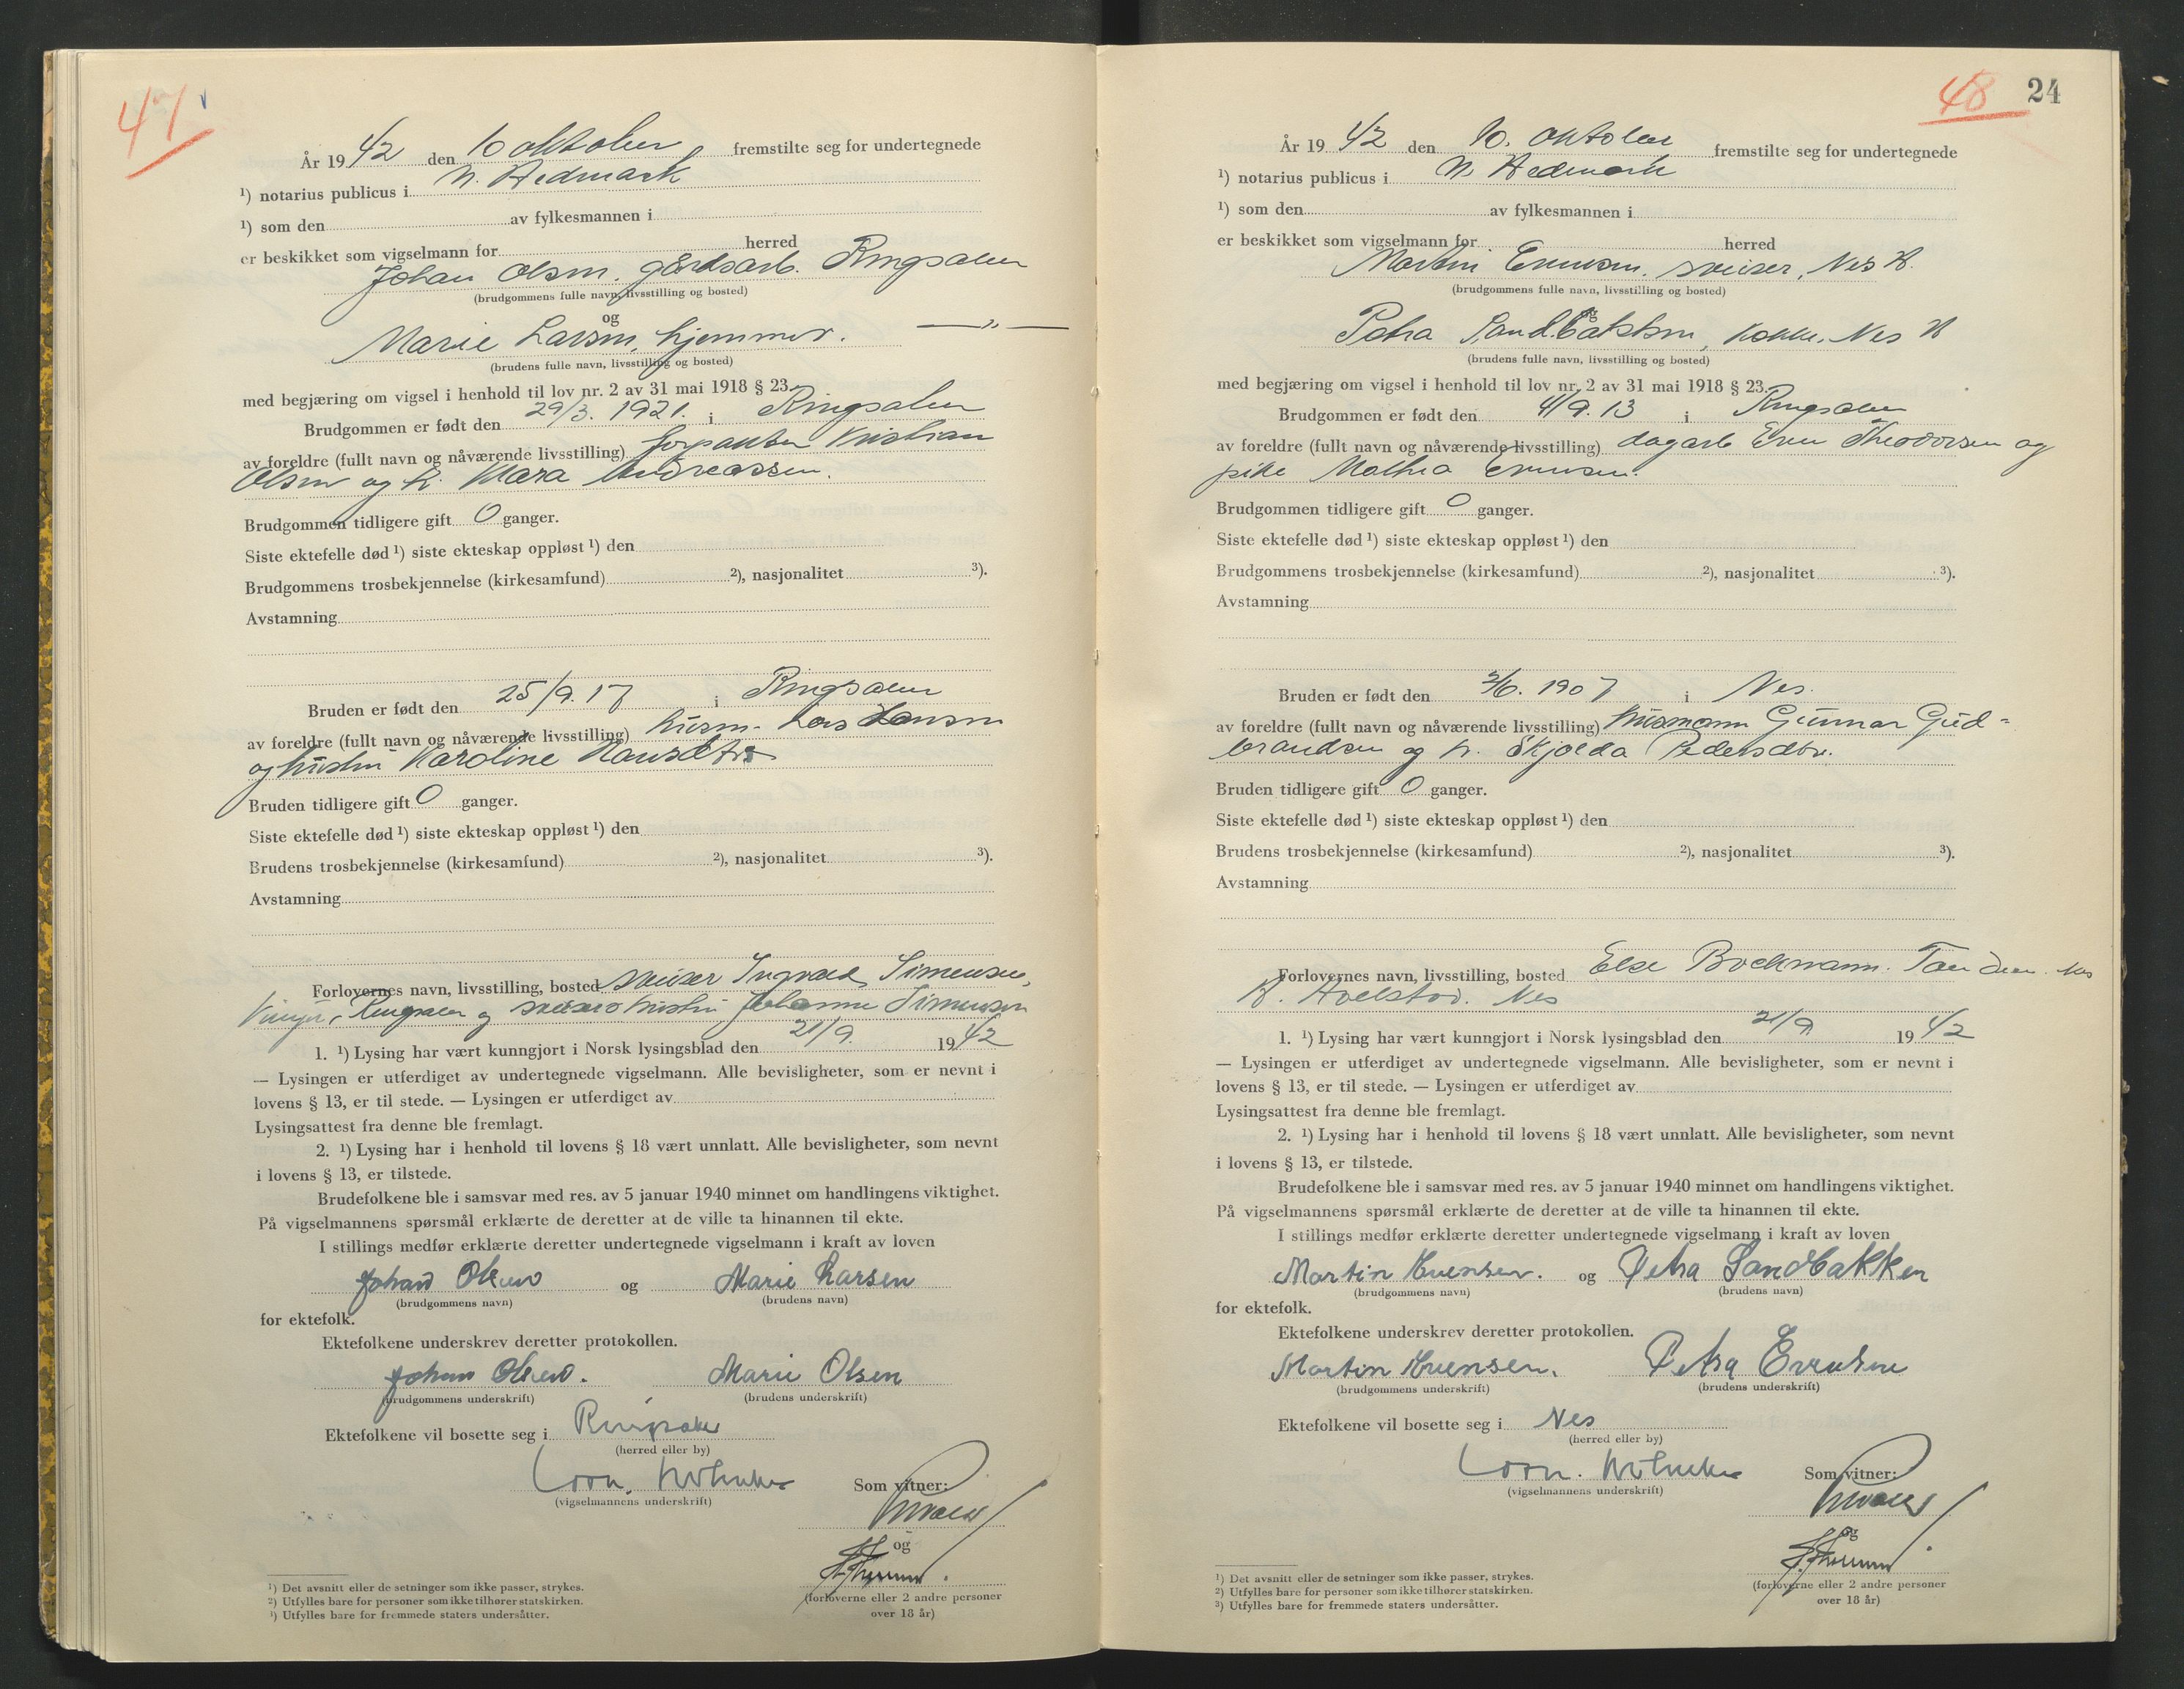 47
År 19 42 den 10 oktober fremstilte seg for undertegnede
¹) notarius publicus i N. Hedmark
¹) som den av fylkesmannen i
er beskikket som vigselmann for herred
Johan Olsen, gårdsarb. Ringsaker
(brudgommens fulle navn, livsstilling og bosted)
og
Marie Larsen, hjemmev. — „ —
(brudens fulle navn, livsstilling og bosted)
med begjæring om vigsel i henhold til lov nr. 2 av 31 mai 1918 § 23.
Brudgommen er født den 29/3. 1921. i Ringsaker
av foreldre (fullt navn og nåværende livsstilling) forpakter Kristian
Olsen og h. Klara Andreassen.
Brudgommen tidligere gift 0 ganger.
Siste ektefelle død ¹) siste ekteskap oppløst ¹) den
Brudgommens trosbekjennelse (kirkesamfund) ²), nasjonalitet ³).
Avstamning
Bruden er født den 25/9. 17 i Ringsaker
av foreldre (fullt navn og nåværende livsstilling) husm. Lars Hansen
og hustru Karoline Hansdtr
Bruden tidligere gift 0 ganger.
Siste ektefelle død ¹) siste ekteskap oppløst ¹) den
Brudens trosbekjennelse (kirkesamfund) ²), nasjonalitet ³).
Avstamning
Forlovernes navn, livsstilling, bosted sveiser Ingvald Simensen,
Ringsaker og sveisers hustru Johanne Simensen
1. ¹) Lysing har vært kunngjort i Norsk lysingsblad den 21/9. 19 42
— Lysingen er utferdiget av undertegnede vigselmann. Alle bevisligheter, som er nevnt i
lovens § 13, er til stede. — Lysingen er utferdiget av
Lysingsattest fra denne ble fremlagt.
2. ¹) Lysing har i henhold til lovens § 18 vært unnlatt. Alle bevisligheter, som nevnt
i lovens § 13, er tilstede.
Brudefolkene ble i samsvar med res. av 5 januar 1940 minnet om handlingens viktighet.
På vigselmannens spørsmål erklærte de deretter at de ville ta hinannen til ekte.
I stillings medfør erklærte deretter undertegnede vigselmann i kraft av loven
Johan Olsen og Marie Larsen
(brudgommens navn) (brudens navn)
for ektefolk.
Ektefolkene underskrev deretter protokollen.
Johan Olsen. Marie Olsen
(brudgommens underskrift) (brudens underskrift)
Ektefolkene vil bosette seg i Ringsaker
(herred eller by)
(vigselmannens underskrift)
Som vitner:
og
(forloverne eller 2 andre personer
over 18 år)
¹) Det avsnitt eller de setninger som ikke passer, strykes.
²) Utfylles bare for personer som ikke tilhører statskirken.
³) Utfylles bare for fremmede staters undersåtter.
48 24
År 19 42 den 10. oktober fremstilte seg for undertegnede
¹) notarius publicus i N. Hedmark
¹) som den av fylkesmannen i
er beskikket som vigselmann for herred
Martin Evensen, sveiser, Nes H.
(brudgommens fulle navn, livsstilling og bosted)
og
Petra Sandbakken, kokke, Nes H
(brudens fulle navn, livsstilling og bosted)
med begjæring om vigsel i henhold til lov nr. 2 av 31 mai 1918 § 23.
Brudgommen er født den 4/9. 13 i Ringsaker
av foreldre (fullt navn og nåværende livsstilling) dagarb Even Theodorsen og
pike Mathea Evensen.
Brudgommen tidligere gift 0 ganger.
Siste ektefelle død ¹) siste ekteskap oppløst ¹) den
Brudgommens trosbekjennelse (kirkesamfund) ²), nasjonalitet ³).
Avstamning
Bruden er født den 3/6. 1907 i Nes.
av foreldre (fullt navn og nåværende livsstilling) husmann Gunnar Gud-
brandsen og h. Skjolda Pedersdtr.
Bruden tidligere gift 0 ganger.
Siste ektefelle død ¹) siste ekteskap oppløst ¹) den
Brudens trosbekjennelse (kirkesamfund) ²), nasjonalitet ³).
Avstamning
Forlovernes navn, livsstilling, bosted Else Bockmann. Nes
K. Nes
1. ¹) Lysing har vært kunngjort i Norsk lysingsblad den 21/9. 19 42
— Lysingen er utferdiget av undertegnede vigselmann. Alle bevisligheter, som er nevnt i
lovens § 13, er til stede. — Lysingen er utferdiget av
Lysingsattest fra denne ble fremlagt.
2. ¹) Lysing har i henhold til lovens § 18 vært unnlatt. Alle bevisligheter, som nevnt
i lovens § 13, er tilstede.
Brudefolkene ble i samsvar med res. av 5 januar 1940 minnet om handlingens viktighet.
På vigselmannens spørsmål erklærte de deretter at de ville ta hinannen til ekte.
I stillings medfør erklærte deretter undertegnede vigselmann i kraft av loven
Martin Evensen. og Petra Sandbakken
(brudgommens navn) (brudens navn)
for ektefolk.
Ektefolkene underskrev deretter protokollen.
Martin Evensen. Petra Evensen
(brudgommens underskrift) (brudens underskrift)
Ektefolkene vil bosette seg i Nes
(herred eller by)
(vigselmannens underskrift)
Som vitner:
og
(forloverne eller 2 andre personer
over 18 år)
¹) Det avsnitt eller de setninger som ikke passer, strykes.
²) Utfylles bare for personer som ikke tilhører statskirken.
³) Utfylles bare for fremmede staters undersåtter.